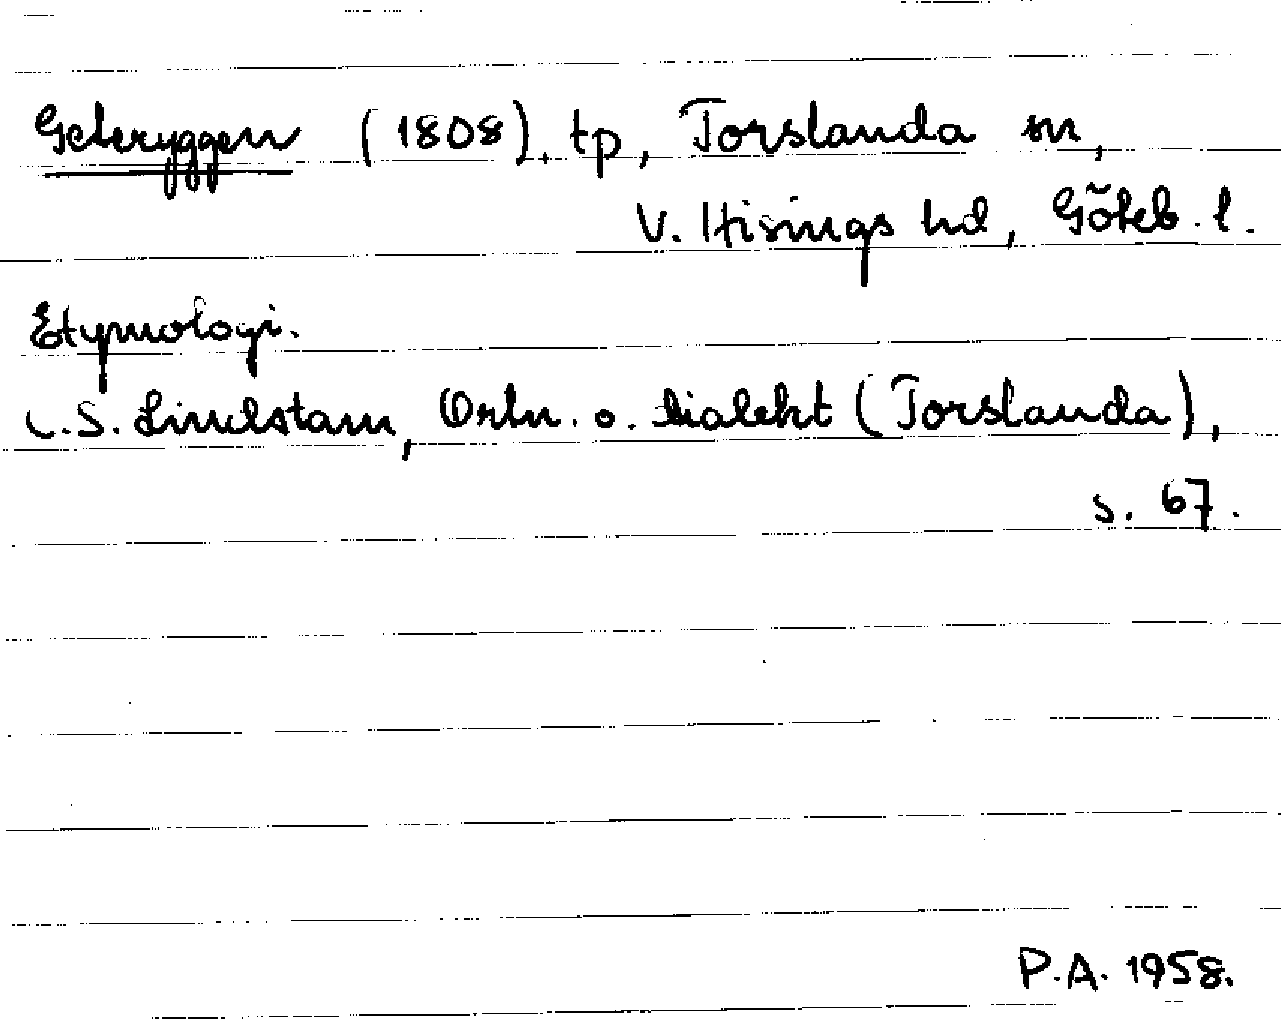 Geteryggen (1808), tp, Torslanda sn,
V. Hisings hd, Göteb. l.
Etymologi.
C.S. Lindstam, Ortn. o. dialekt (Torslanda),
s. 67.
P.A. 1958.